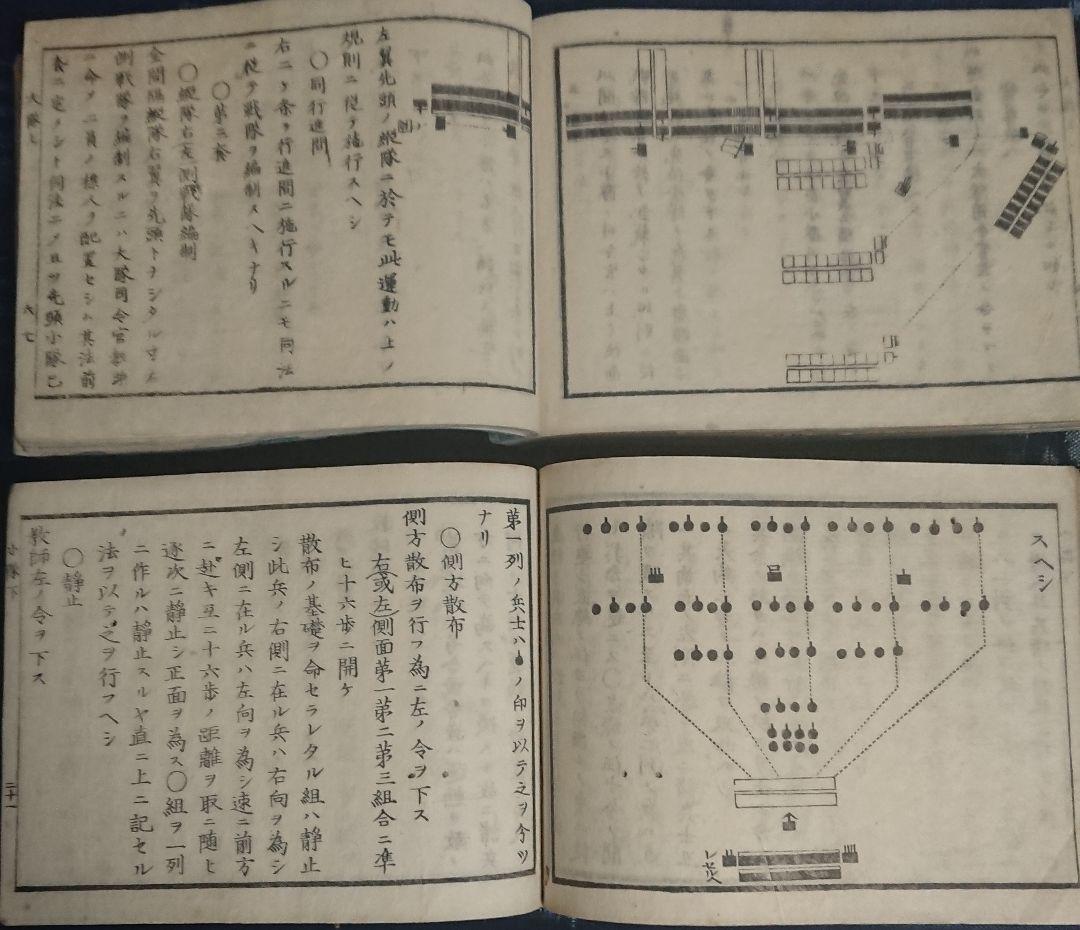 左翼先頭ノ縦隊ニ於テモ此運動ハ上ノ
規則ニ従テ施行スヘシ
〇同行進間
右ニケ条ヲ行進間ニ施行スルニモ同法
ニ従テ戦隊ヲ編制スヘキナリ
〇第二条
〇縦隊右(左)側戦隊編制
全間隔縦隊右翼ヲ先頭トナシタル
側戦隊ヲ編制スルニハ大隊司令官
ニ命ノ二員ノ標人ヲ配置セシム其法前
条ニ定メシト同法ニノ且ツ先頭小隊己
スヘシ
第一列ノ兵士ハノ印ヲ以テ之ヲ今ツ
ナリ
〇側方散布
側方散布ヲ行フ為ニ左ノ令ヲ下ス
右或左側面第一第二第三組合ニ準
ヒ十六歩ニ開ケ
散布ノ基礎ヲ命セラレタル組ハ静止
シ此兵ノ右側ニ在ル兵ハ右向ヲ為シ
左側ニ在ル兵ハ左向ヲ為シ速ニ前方
ニ赴キ互ニ十六歩ノ距離ヲ取ニ随ヒ
逐次ニ静止シ正面ヲ為ス〇組ヲ一列
ニ作ルハ静止スルヤ直ニ上ニ記セル
法ヲ以テ之ヲ行フヘシ
〇静止
教師左ノ令ヲ下ス
小隊下
二十一